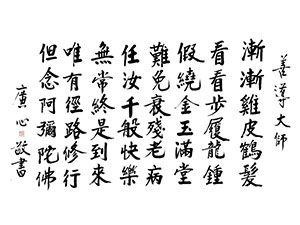 善導大師
漸漸雞皮鶴髮
看看步履龍鍾
假繞金玉滿堂
難免衰殘老病
任汝千般快樂
無常終是到來
唯有徑路修行
但念阿彌陀佛
廣心敬書